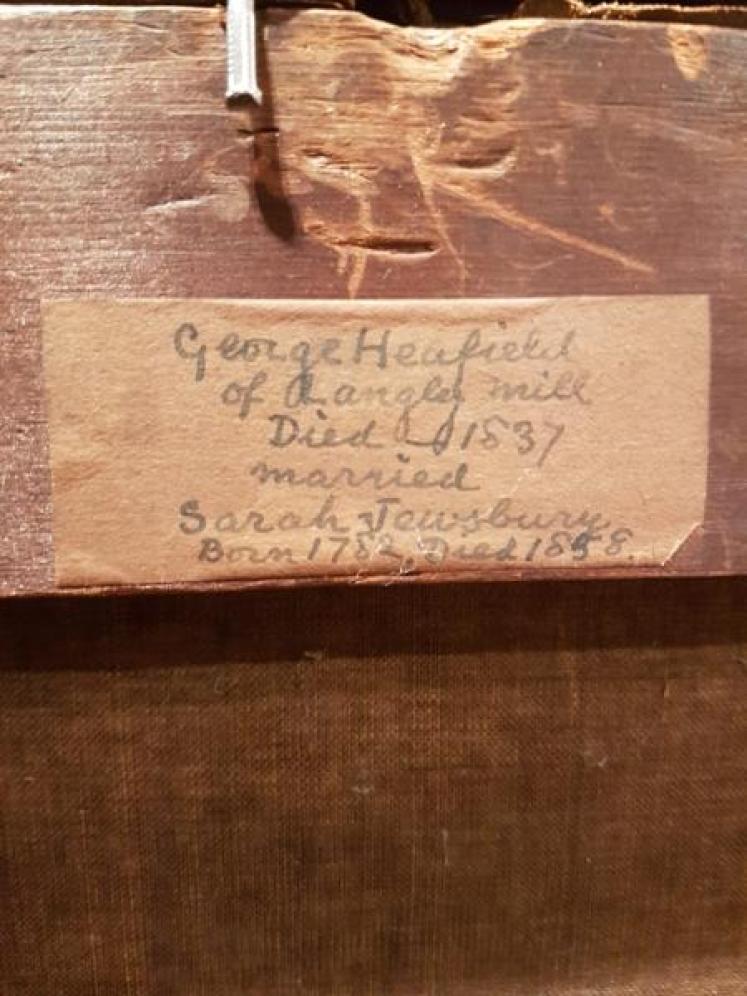 George Heafield
of Langley mill
Died 1837
married
Sarah Jewsbury
Born 1782, Died 1858.